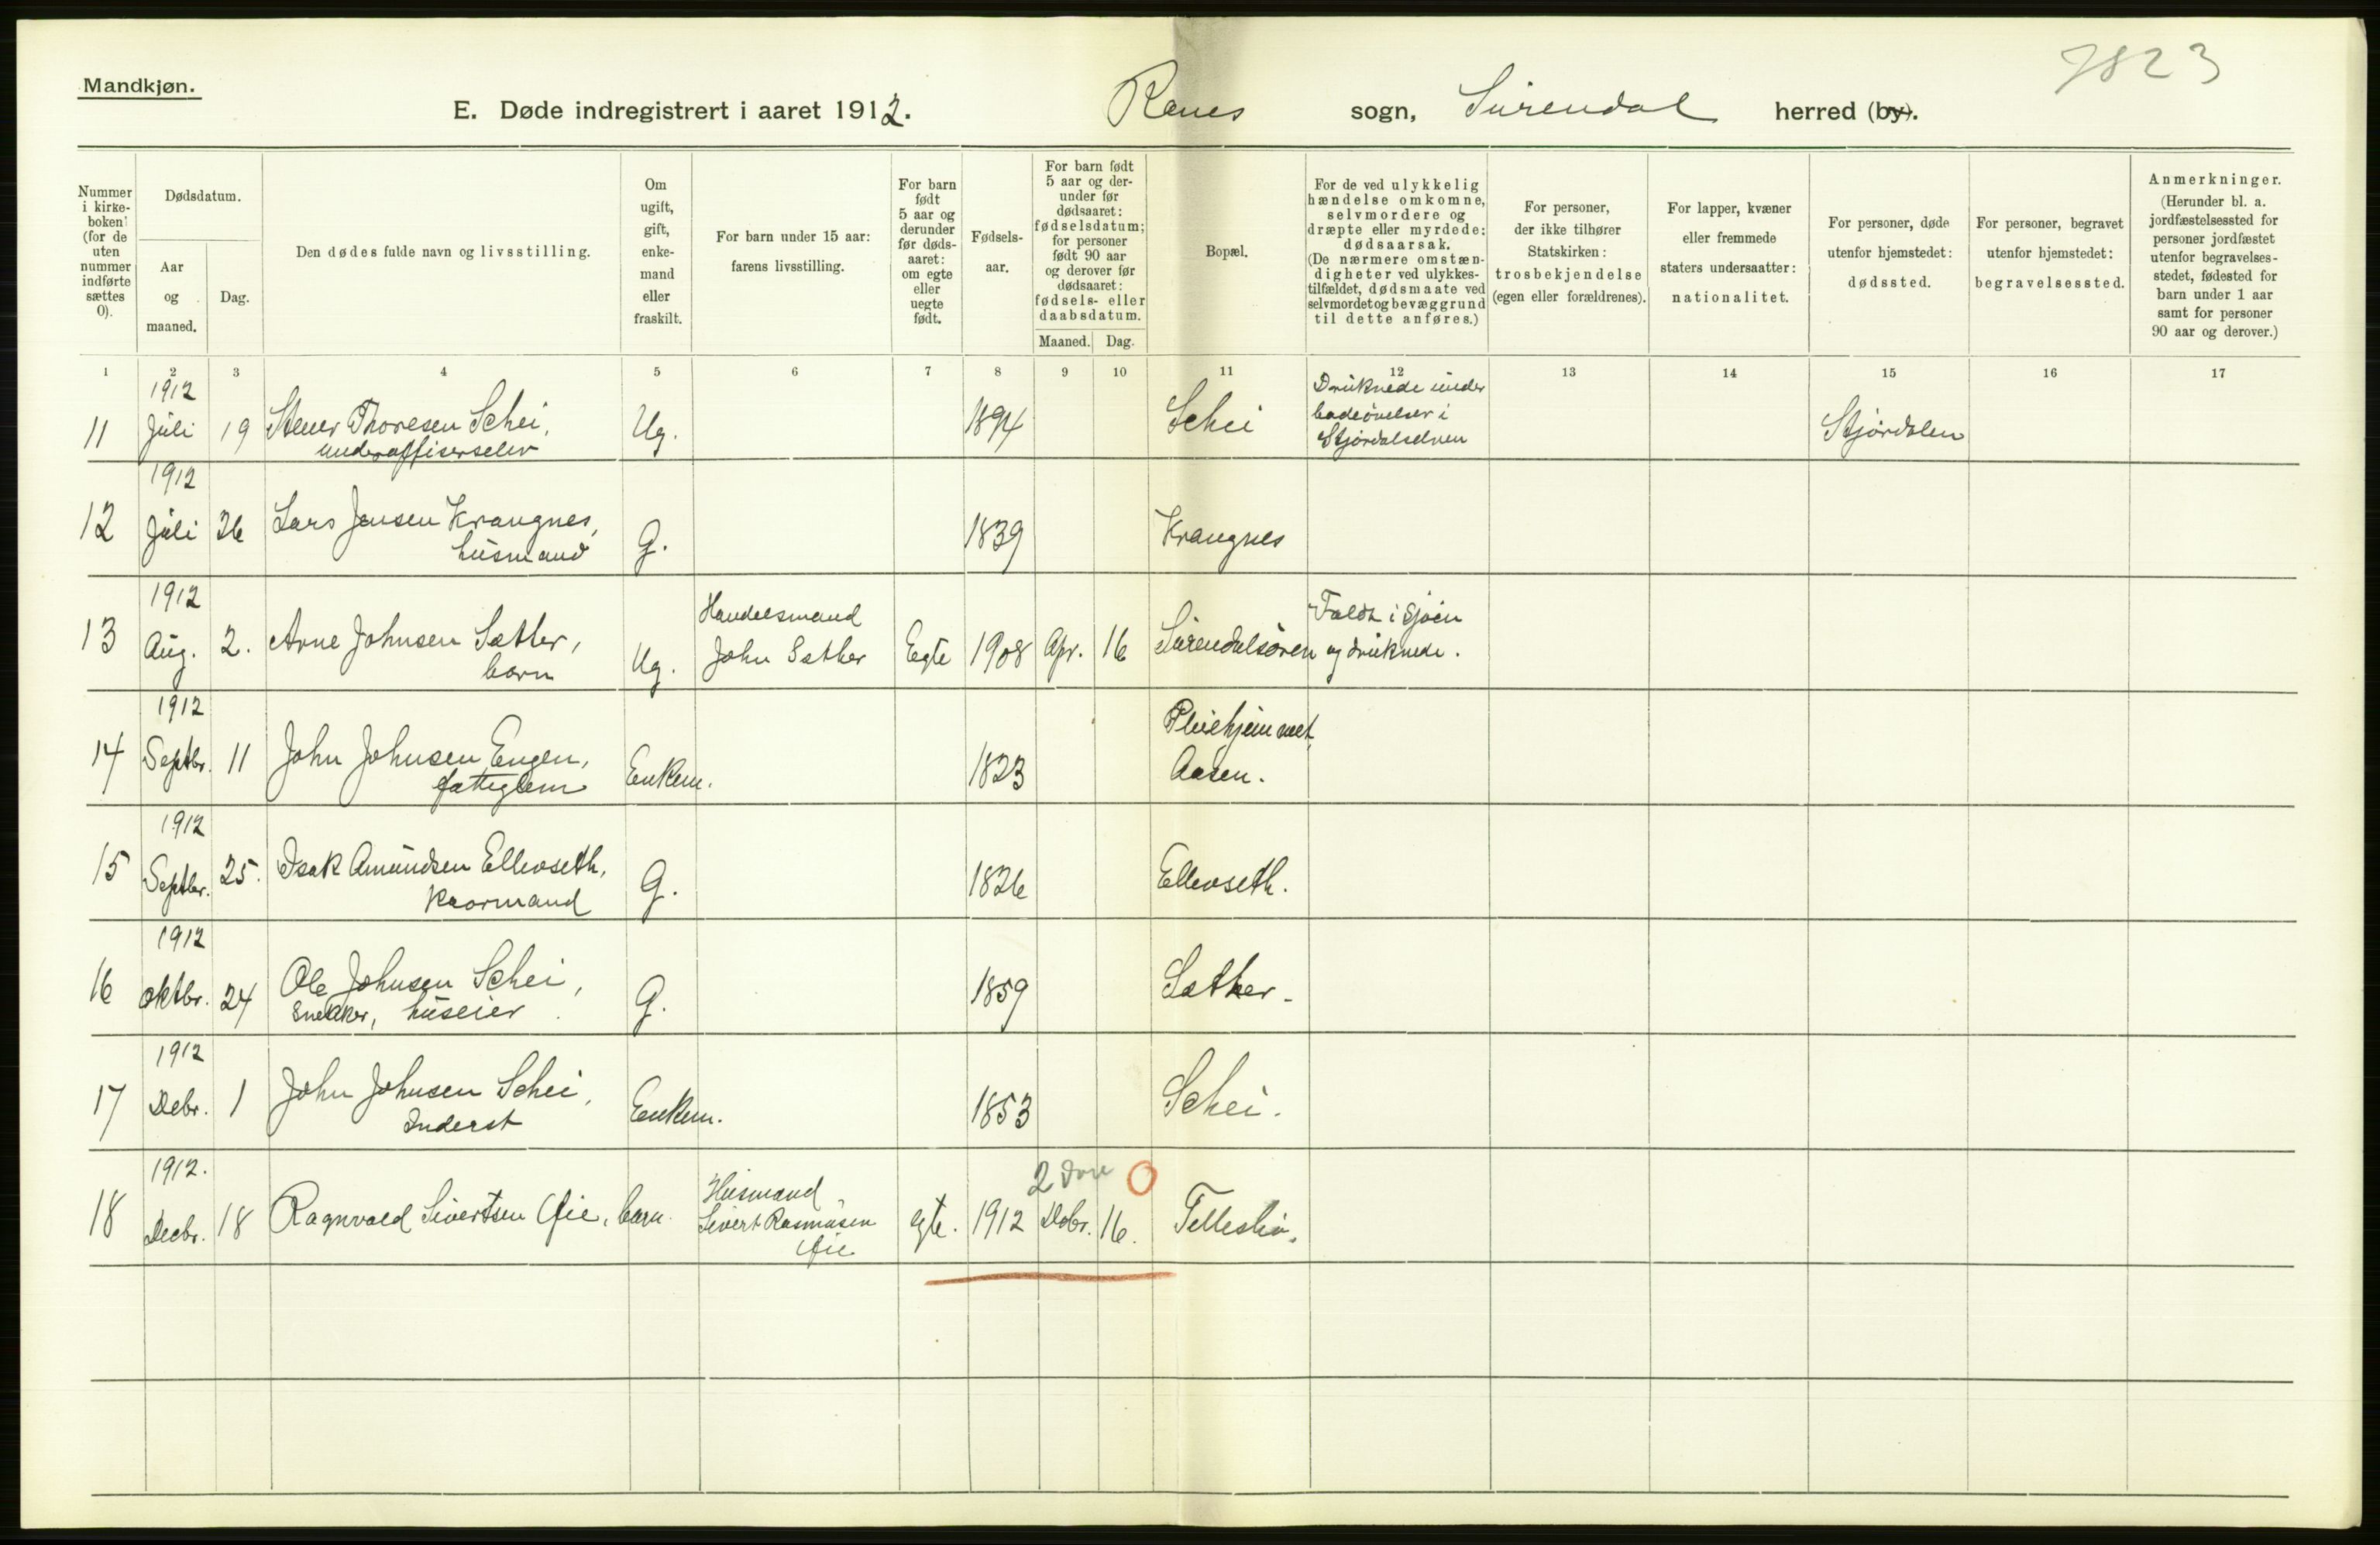 7823
Mandkjøn.
E. Døde indregistrert i aaret 1912. Ranes sogn, Surendal herred (by).
Nummer i kirke-boken (for de uten nummer indførte sættes 0).
Dødsdatum.
Aar og maaned.
Dag.
Den dødes fulde navn og livsstilling.
Om ugift, gift, enke-mand eller fraskilt.
For barn under 15 aar: farens livsstilling.
For barn født 5 aar og derunder før døds-aaret: om egte eller uegte født.
Fødsels-aar.
For barn født 5 aar og der-under før dødsaaret: fødselsdatum; for personer født 90 aar og derover før dødsaaret: fødsels- eller daabsdatum.
Maaned. Dag.
Bopæl.
For de ved ulykkelig hændelse omkomne, selvmordere og dræpte eller myrdede: dødsaarsak. (De nærmere omstæn-digheter ved ulykkes-tilfældet, dødsmaate ved selvmordet og bevæggrund til dette anføres.)
For personer, der ikke tilhører Statskirken: trosbekjendelse (egen eller forældrenes).
For lapper, kvæner eller fremmede staters undersaatter: nationalitet.
For personer, døde utenfor hjemstedet: dødssted.
For personer, begravet utenfor hjemstedet: begravelsessted.
Anmerkninger. (Herunder bl. a. jordfæstelsessted for personer jordfæstet utenfor begravelses-stedet, fødested for barn under 1 aar samt for personer 90 aar og derover.)
1 2 3 4 5 6 7 8 9 10 11 12 13 14 15 16 17
1912
11 Juli 19 Stener Thoresen Schei, underoffiserselev Ug. 1894 Schei Druknede under badeövelser i Stjördalselven Stjördalen
1912
12 Juli 26 Lars Jensen Krangnes, husmand G. 1839 Krangnes
1912
13 Aug. 2. Arne Johnsen Sæther, barn Ug. Handelsmand John Sæther Egte 1908 Apr. 16 Surendalsören Faldt i sjöen og druknede.
1912
14 Septbr. 11 John Johnsen Engen, fattiglem Enkem. 1823 Pleiehjemmet, Aasen.
1912
15 Septbr. 25. Isak Amundsen Ellevseth, kaarmand G. 1826 Ellevseth.
1912
16 Oktbr. 24 Ole Johnsen Schei, snekker, huseier G. 1859 Sæther.
1912
17 Debr. 1 John Johnsen Schei, Inderst Enkem. 1853 Schei.
1912.
18 Decbr. 18 Ragnvald Sivertsen Øie, barn. Husmand Sivert Rasmusen Øie egte. 1912 Debr. 16. 2 0